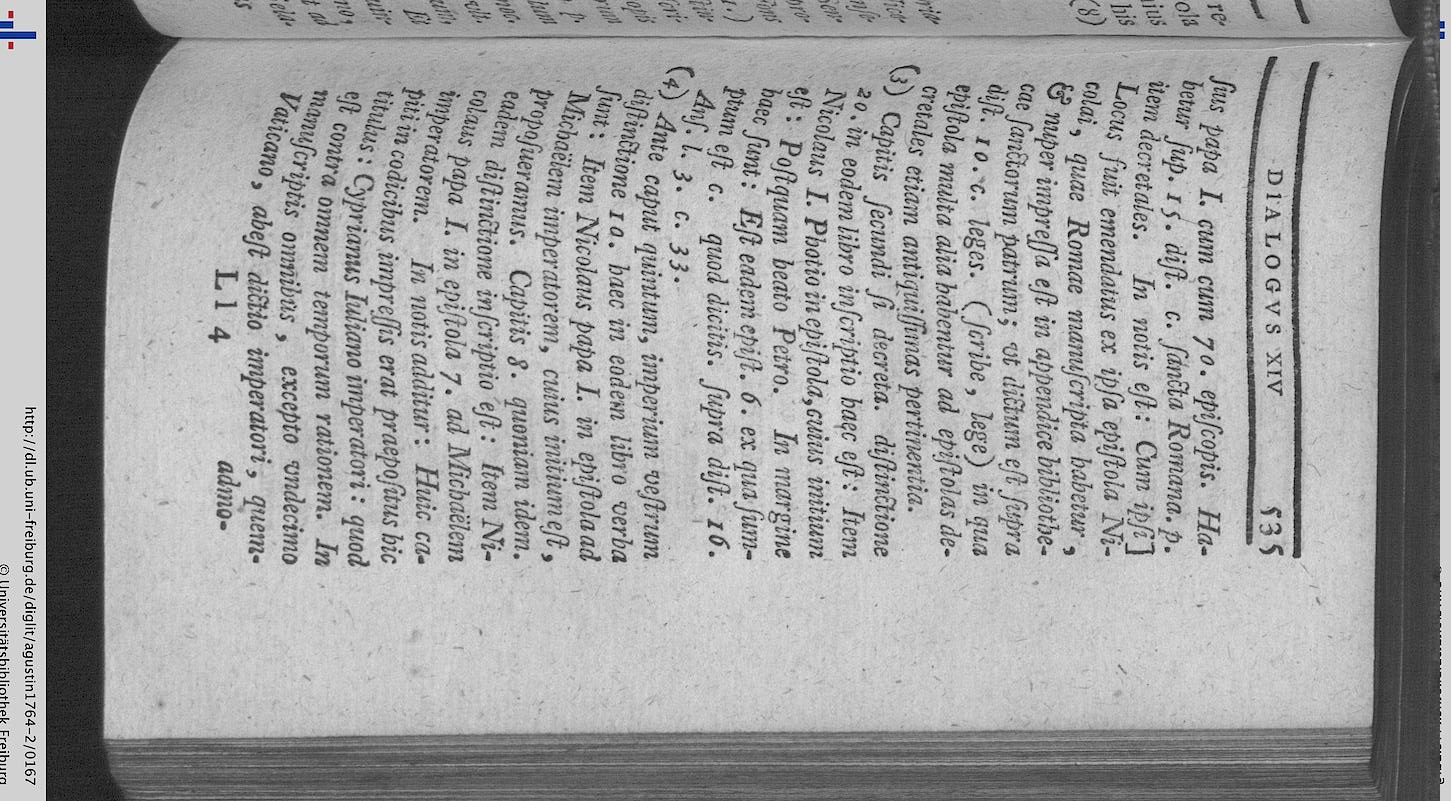 DIALOGVS XIV 535
ſus papa I. cum cum 70. epiſcopis. Ha-
betur ſup. 15. diſt. c. ſancta Romana. p.
item decretales. In notis eſt: Cum ipſi]
Locus fuit emendatus ex ipſa epiſtola Ni-
colai, quae Romae manuſcripta habetur,
& nuper impreſſa eſt in appendice bibliothe-
cae ſanctorum patrum; vt dictum eſt ſupra
diſt. 10. c. leges. (ſcribe, lege) in qua
epiſtola multa alia habentur ad epiſtolas de-
cretales etiam antiquiſſimas pertinentia.
(3) Capitis ſecundi ſi decreta. diſtinctione
20. in eodem libro inſcriptio haec eſt: Item
Nicolaus I. Photio in epiſtola, cuius initium
eſt: Poſtquam beato Petro. In margine
haec ſunt: Eſt eadem epiſt. 6. ex qua ſum-
ptum eſt c. quod dicitis. ſupra diſt. 16.
Anſ. l. 3. c. 33.
(4) Ante caput quintum, imperium veſtrum
diſtinctione 10. haec in eodem libro verba
ſunt: Item Nicolaus papa I. in epiſtola ad
Michaëlem imperatorem, cuius initium eſt,
propoſueramus. Capitis 8. quoniam idem.
eadem diſtinctione inſcriptio eſt: Item Ni-
colaus papa I. in epiſtola 7. ad Michaëlem
imperatorem. In notis additur: Huic ca-
piti in codicibus impreſſis erat praepoſitus hic
titulus: Cyprianus Iuliano imperatori: quod
eſt contra omnem temporum rationem. In
manuſcriptis omnibus, excepto vndecimo
Vaticano, abeſt dictio imperatori, quem-
L l 4 admo-
http://dl.ub.uni-freiburg.de/diglit/agustin1764-2/0167
© Universitätsbibliothek Freiburg